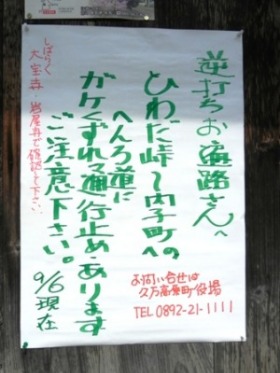 逆打ちお遍路さんへ
ひわだ峠〜内子町への
へんろ道に
ガケくずれで通行止めあります
ご注意下さい。
9/6現在
しばらく
大宝寺・岩屋寺で確認して下さい
お問い合せは
久万高原町役場
TEL 0892-21-1111